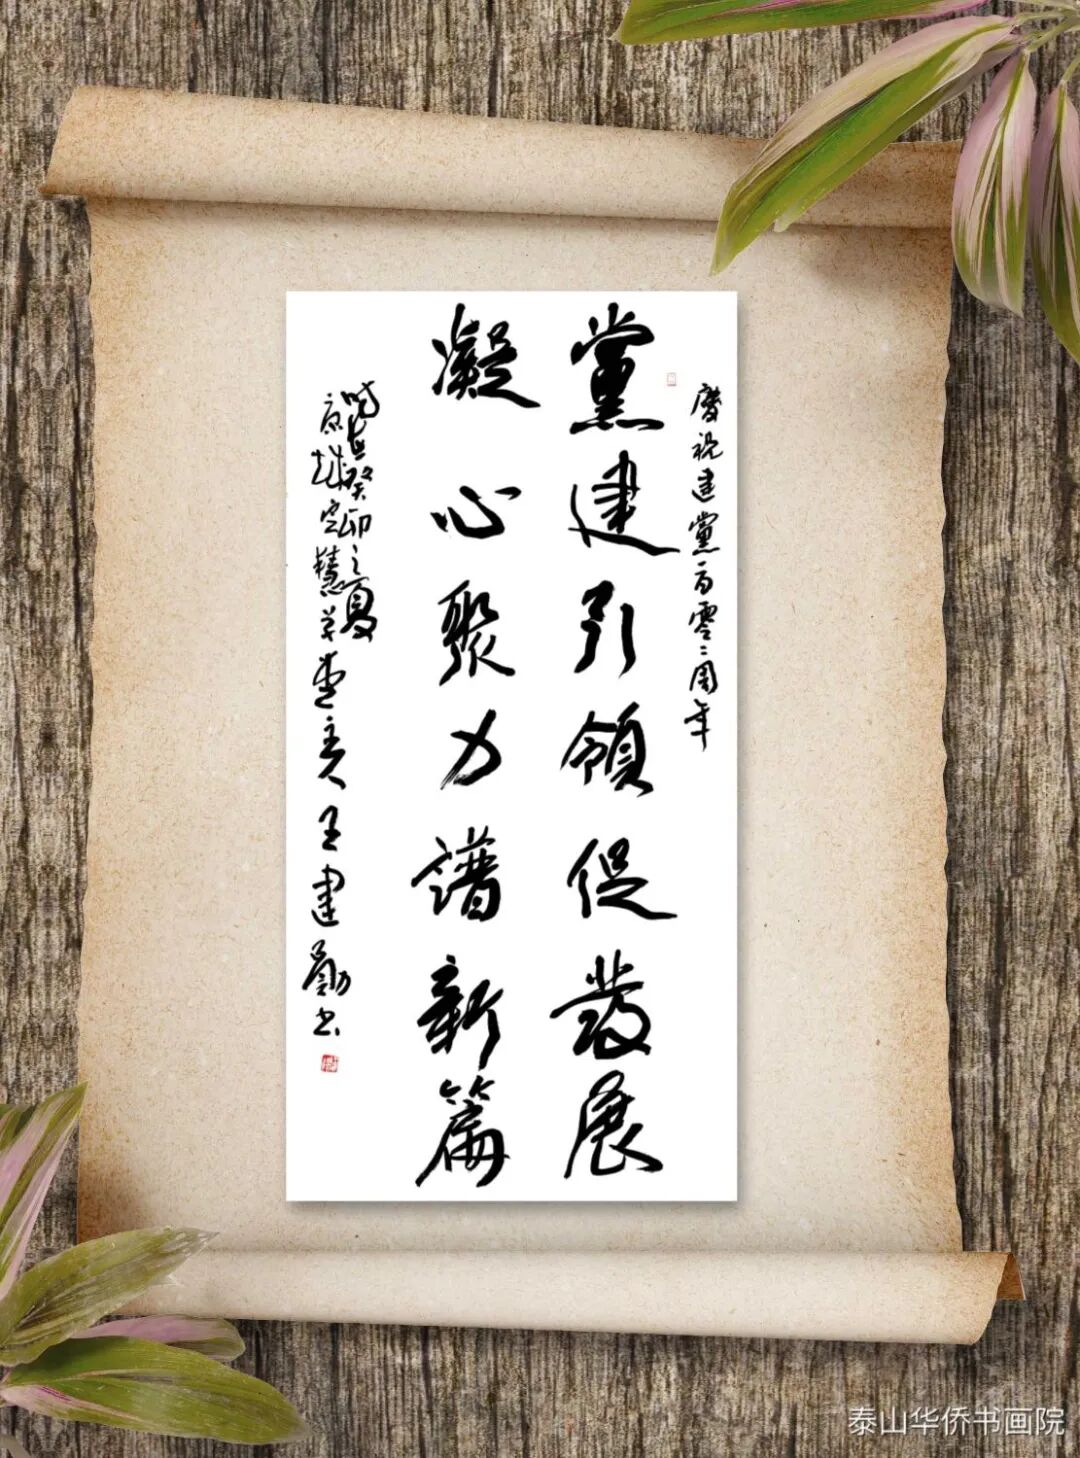 慶祝建黨百零二周年
黨建引領促發展
凝心聚力譜新篇
時在癸卯之夏
京城定慧草堂主人王建勛书
泰山华侨书画院